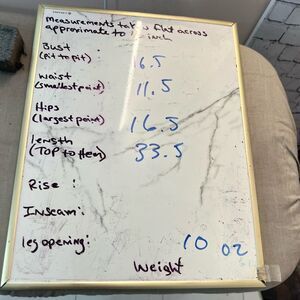 Measurements taken flat across
approximate to inch
Bust
(Pit to pit) 6.5
Waist
(smallest point) 11.5
Hips
(largest point) 16.5
length
(Top to Hem) 33.5
Rise :
Inseam:
leg opening:
10 oz
Weight